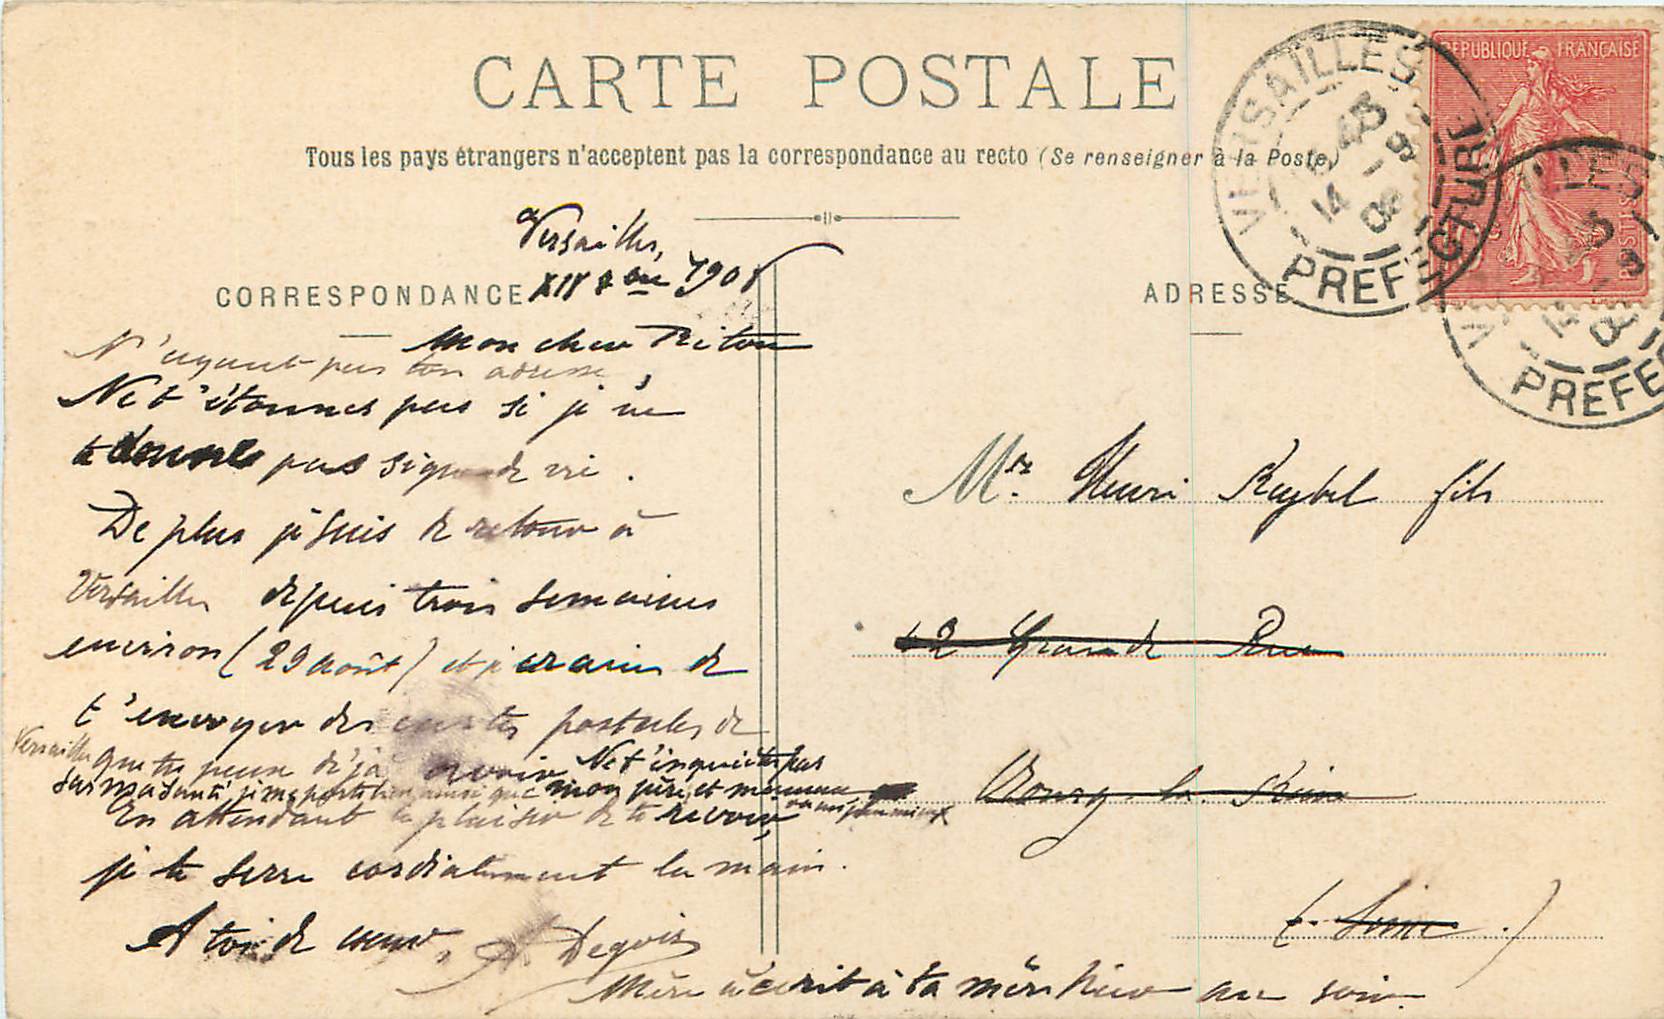 CARTE POSTALE
Tous les pays étrangers n'acceptent pas la correspondance au recto (Se renseigner à la Poste)
CORRESPONDANCE
ADRESSE
REPUBLIQUE FRANÇAISE
POSTES
VERSAILLES
PREFECTURE
Versailles,
XIV 7bre 1908
Mon cher Riton
N'ayant pas ton adresse,
Ne t'étonnes pas si je ne
te donne pas signe de vie.
De plus je suis de retour à
Versailles depuis trois semaines
environ (29 août) et je crains de
t'envoyer des cartes postales de
Versailles que tu peux déjà avoir Ne t'inquiète pas
sur ma santé je me porte bien ainsi que mon père et maman
on ne peu mieux
En attendant le plaisir de te revoir,
je te serre cordialement la main.
A toi de coeur,
Mère a écrit à ta mère hier au soir.
Mr. Henri fils
12 Grande Rue
Bourg-la-Reine
(Seine)